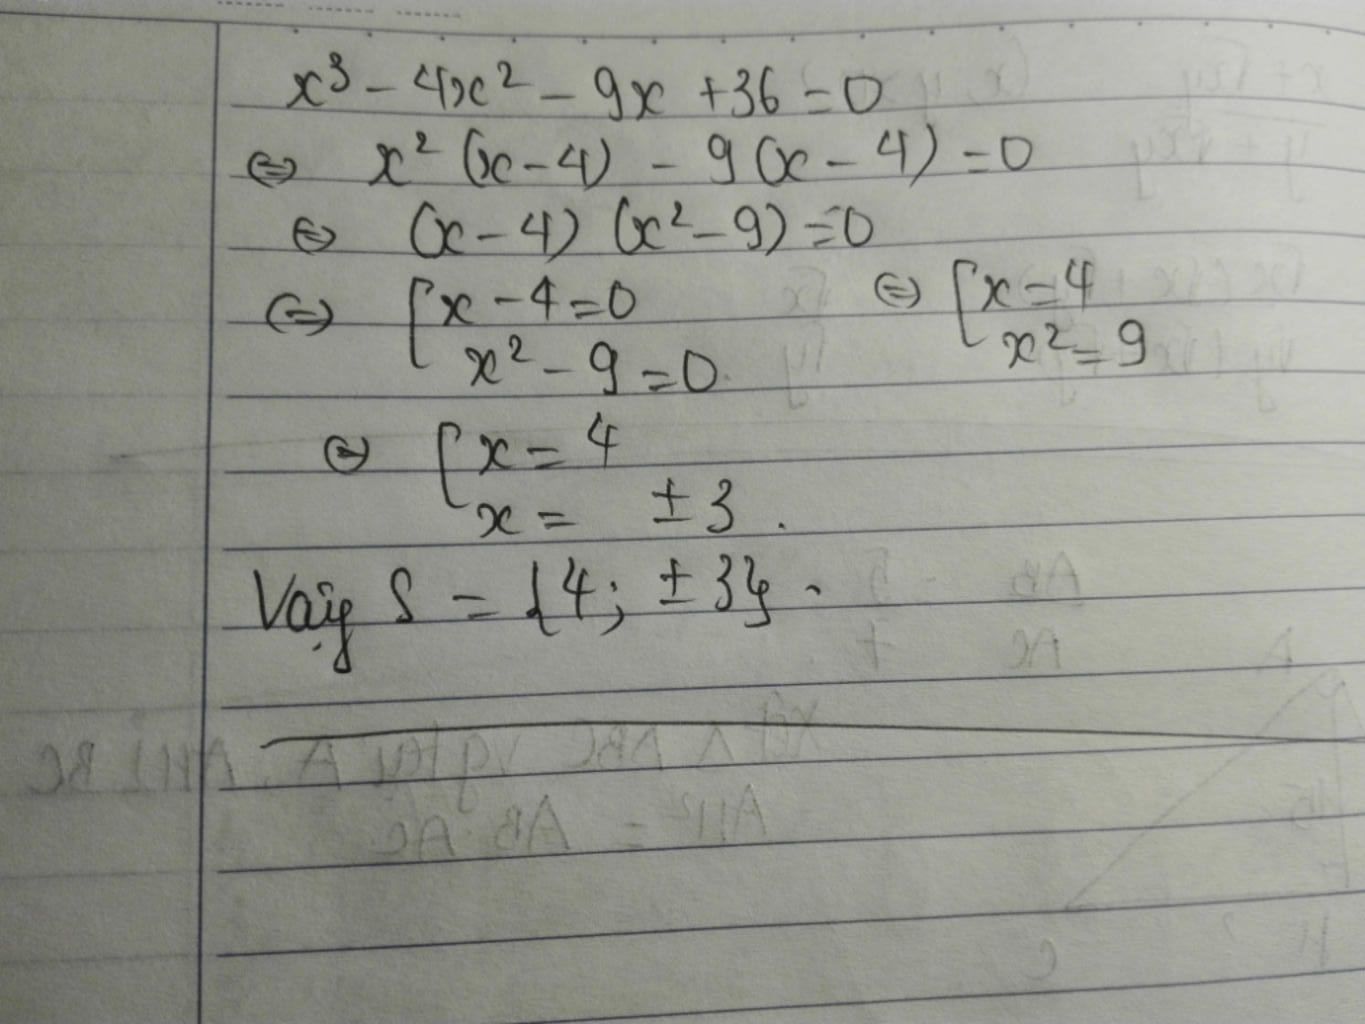 x³ - 4x² - 9x + 36 = 0
⇔ x² (x - 4) - 9 (x - 4) = 0
⇔ (x - 4) (x² - 9) = 0
⇔ [ x - 4 = 0 ⇔ [ x = 4
x² - 9 = 0 x² = 9
⇔ [ x = 4
x = ± 3.
Vậy S = {4; ± 3}.